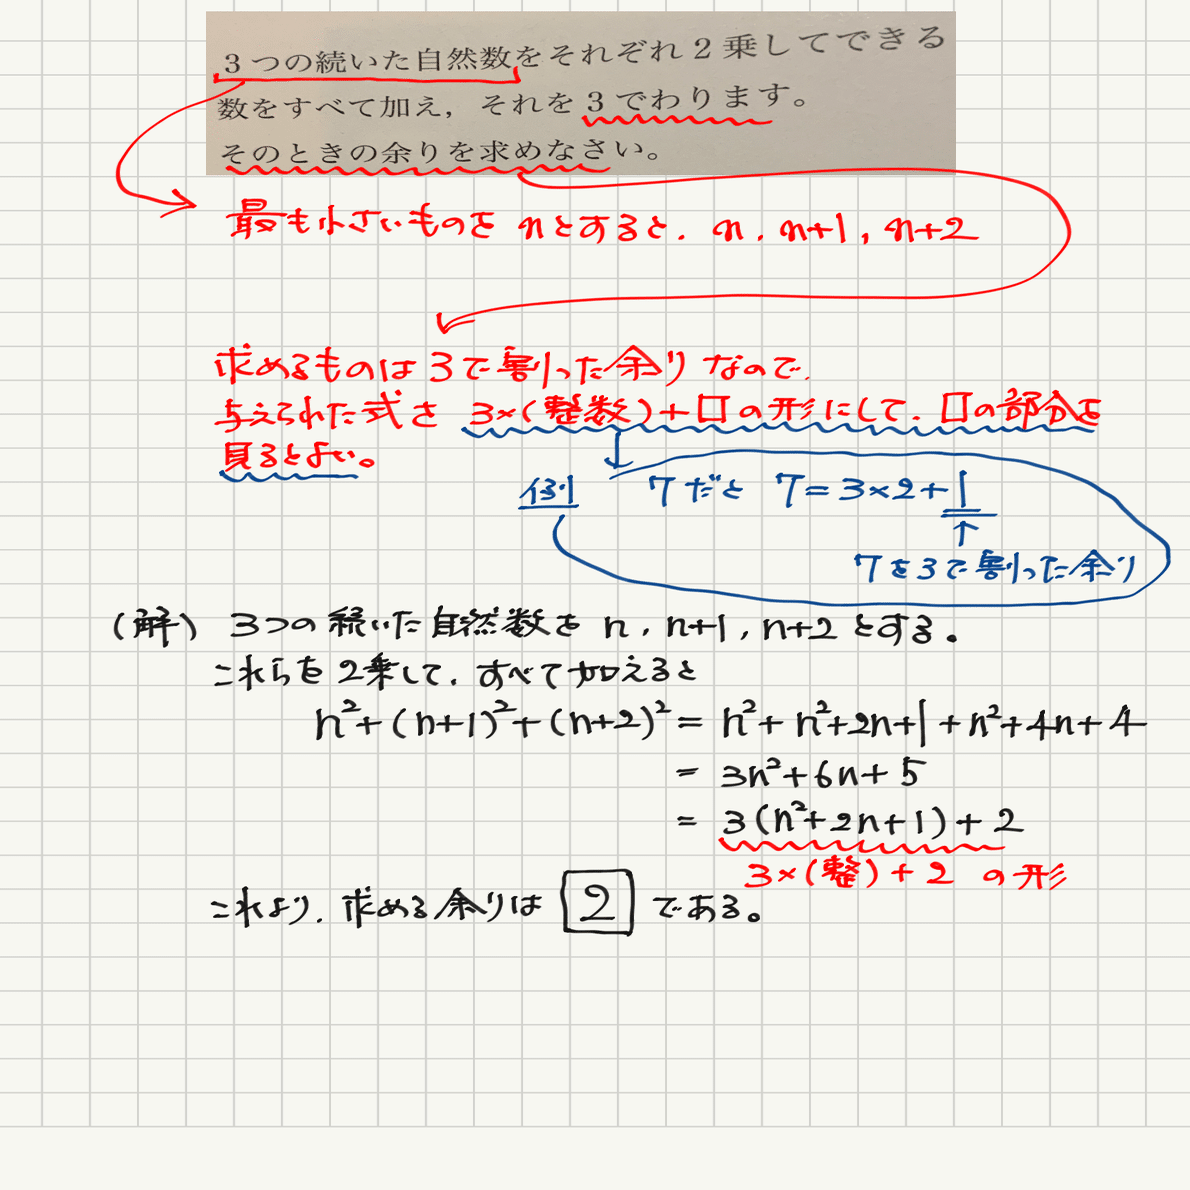 3つの続いた自然数をそれぞれ2乗してできる
数をすべて加え，それを3でわります。
そのときの余りを求めなさい。
最も小さいものを nとすると、n、n+1，n+2
求めるものは 3で割った余りなので、
与えられた式を 3×(整数)+□の形にして、□の部分を
見るとよい。
例 7だと 7=3×2+1
↑
7を3で割った余り
(解) 3つの続いた自然数を n、n+1，n+2とする。
これらを2乗して、すべて加えると
n²+(n+1)²+(n+2)² = n²+n²+2n+1+n²+4n+4
= 3n²+6n+5
= 3(n²+2n+1)+2
3×(整)+2 の形
これより、求める余りは 2 である。